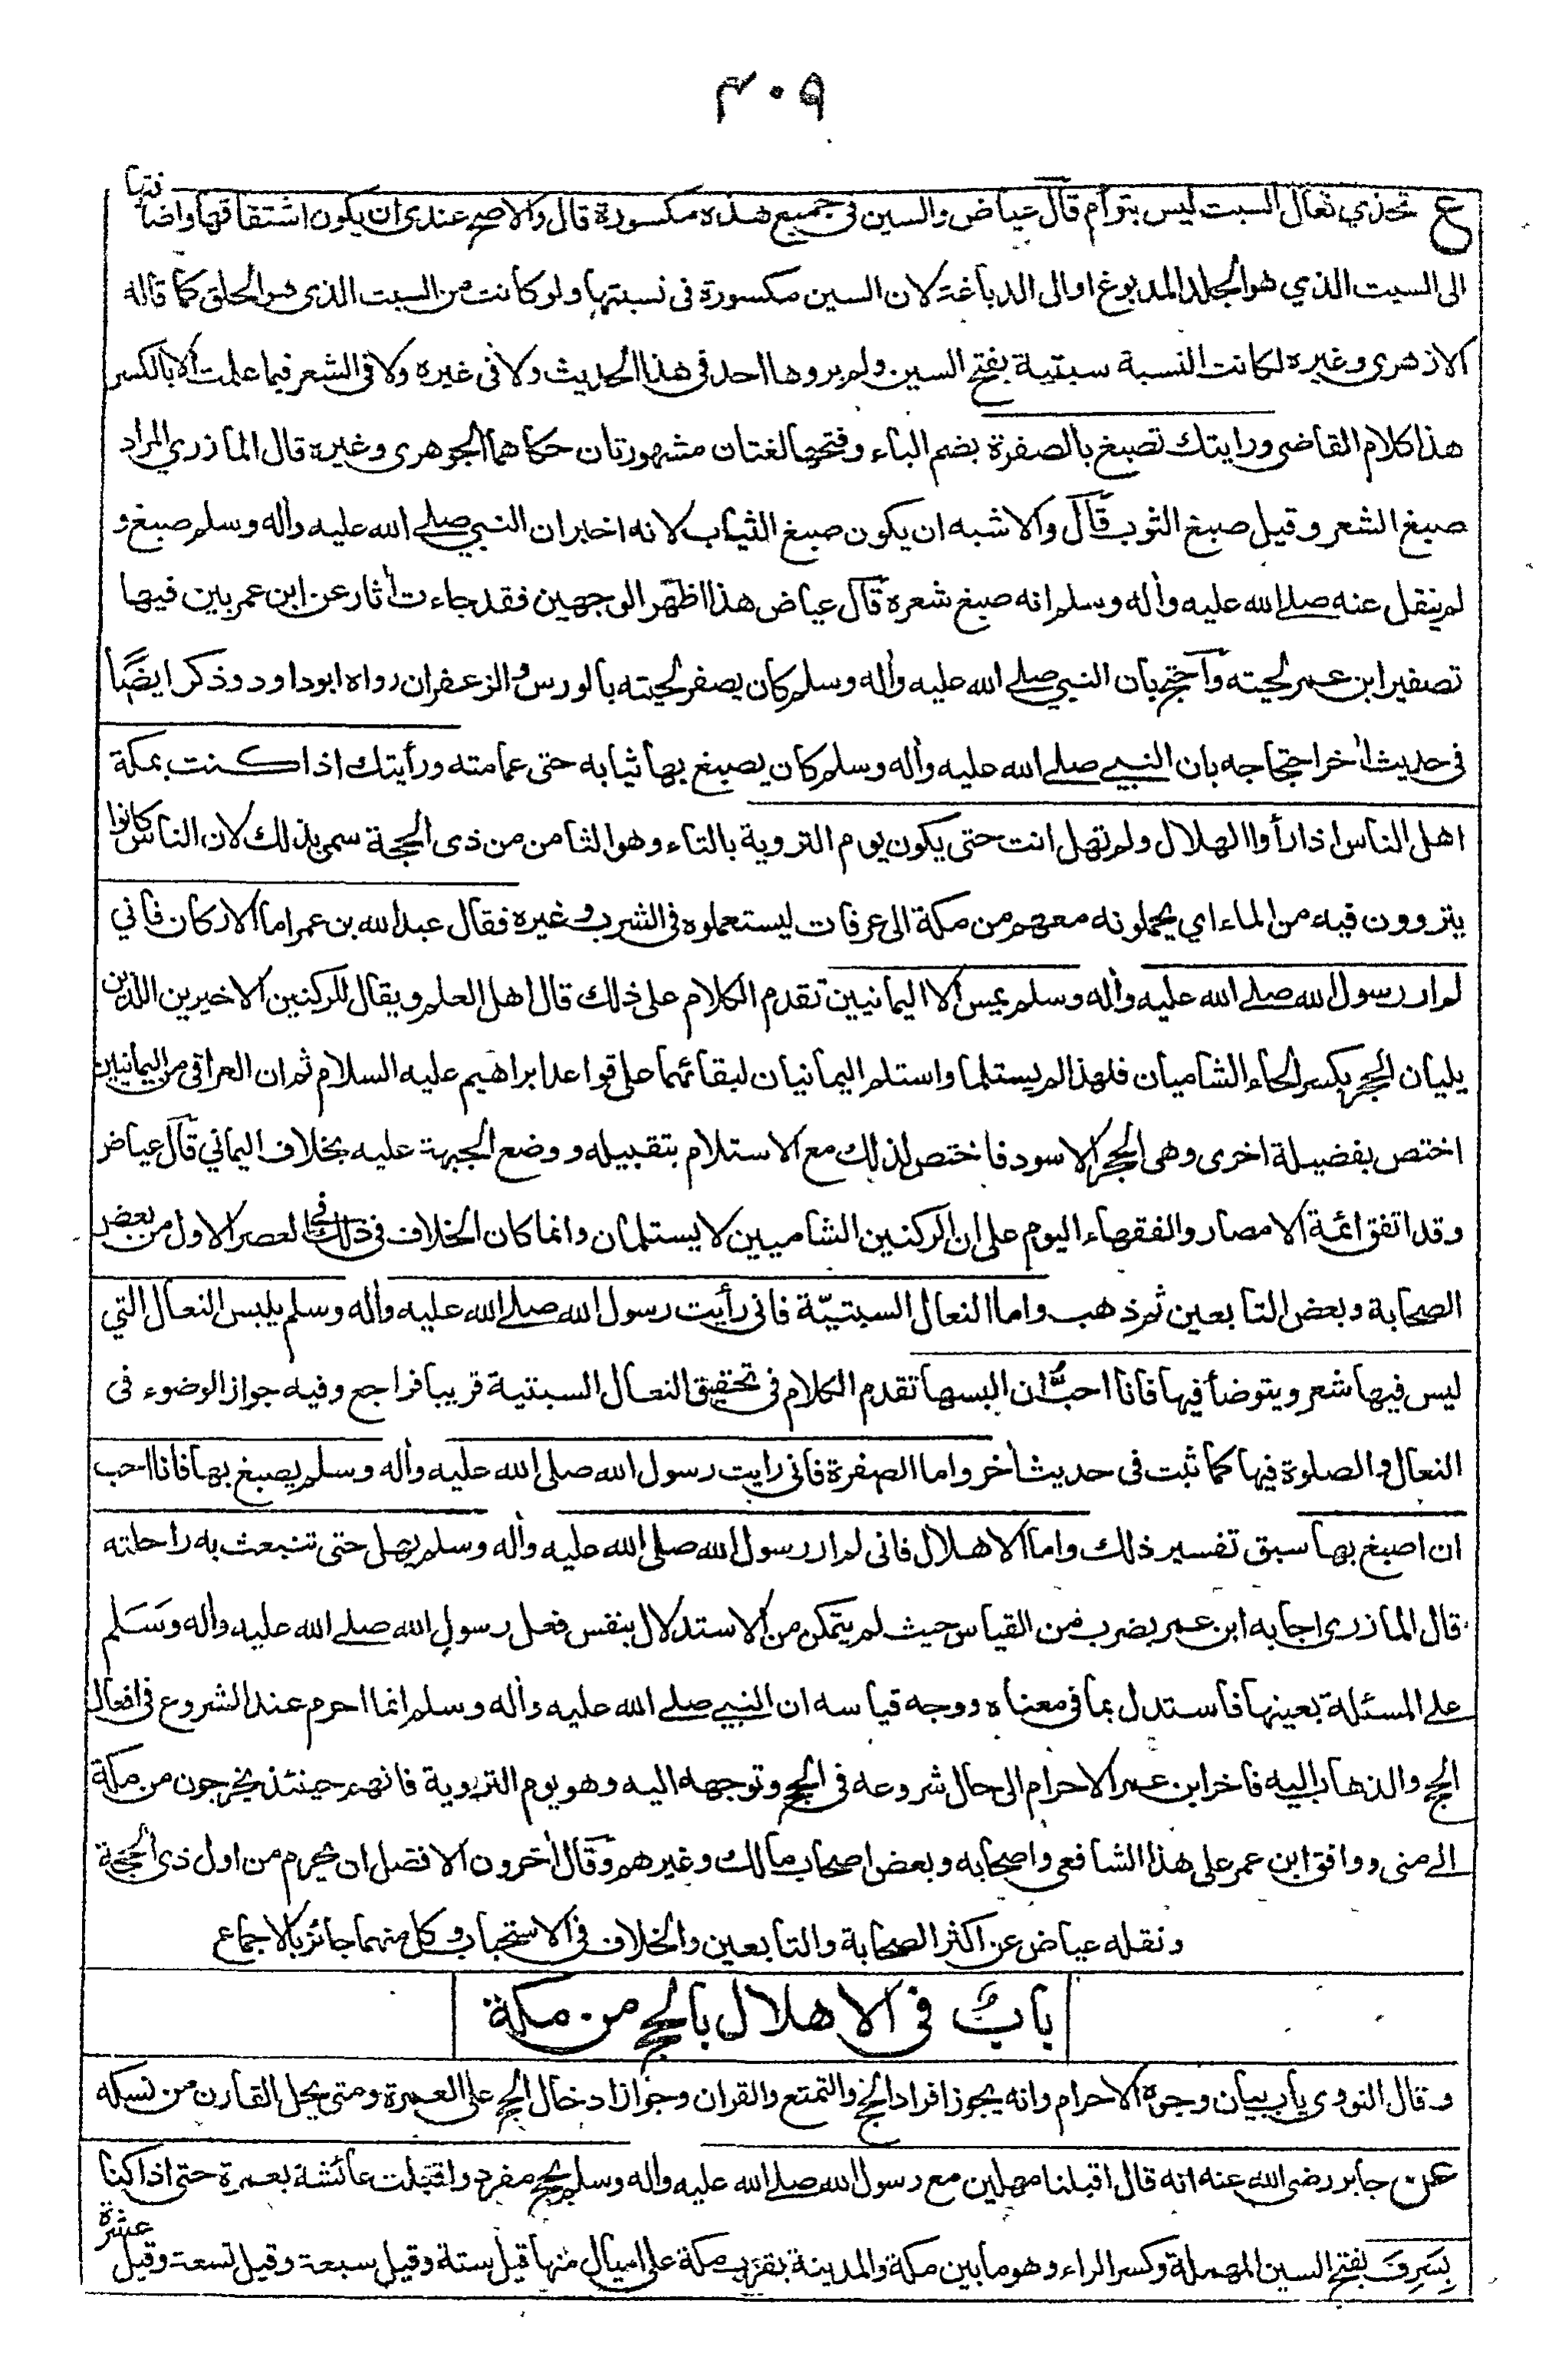 ٤٠٩
ع تحذي نعال السبت ليس بتوأم قال عياض والسين في جميع هذه مكسورة قال والاصح عندي ان يكون اشتقاقها واضافتها
الى السبت الذي هو الجلد المدبوغ او الى الدباغة لان السين مكسورة في نسبتها ولو كانت من السبت الذي هو الحلق كما قاله
الازهري وغيره لكانت النسبة سبتية بفتح السين ولم يروها احد في هذا الحديث ولا في غيره ولا في الشعر فيما علمت الا بالكسر
هذا كلام القاضي ورايتك تصبغ بالصفرة بضم الباء وفتحها لغتان مشهورتان حكاهما الجوهري وغيره قال المازري المراد
صبغ الشعر وقيل صبغ الثوب قال والاشبه ان يكون صبغ الثياب لانه اخبر ان النبي صلے الله عليه وأله وسلم صبغ و
لم ينقل عنه صلے الله عليه وأله وسلم انه صبغ شعره قال عياض هذا اظهر الوجهين فقد جاءت أثار عن ابن عمر بين فيها
تصفير ابن عمر لحيته واحتج بان النبي صلے الله عليه وأله وسلم كان يصفر لحيته بالورس والزعفران رواه ابوداود وذكر ايضًا
في حديث أخر احتجاجه بان النبي صلے الله عليه وأله وسلم كان يصبغ بها ثيابه حتى عمامته ورأيتك اذا كنت بمكة
اهل الناس اذا رأوا الهلال ولم تهل انت حتى يكون يوم التروية بالتاء وهو الثامن من ذى الحجة سمي بذلك لان الناس كانوا
يتروون فيه من الماء اي يحملونه معهم من مكة الى عرفات ليستعملوه في الشرب وغيره فقال عبد الله بن عمر اما الاركان فاني
لم ار رسول الله صلے الله عليه وأله وسلم يمس الا اليمانيين تقدم الكلام على ذلك قال اهل العلم ويقال للركنين الاخيرين اللذين
يليان الحجر بكسر الحاء الشاميان فلهذا لم يستلما واستلم اليمانيان لبقائهما على قواعد ابراهيم عليه السلام ثم ان العراقي من اليمانيين
اختص بفضيلة اخرى وهي الحجر الاسود فاختص لذلك مع الاستلام بتقبيله ووضع الجبهة عليه بخلاف اليماني قال عياض
وقد اتفق ائمة الامصار والفقهاء اليوم على ان الركنين الشاميين لا يستلمان وانما كان الخلاف في ذلك في العصر الاول من بعض
الصحابة وبعض التابعين ثم ذهب واما النعال السبتيّة فاني رأيت رسول الله صلے الله عليه وأله وسلم يلبس النعال التي
ليس فيها شعر ويتوضأ فيها فانا احبُّ ان البسها تقدم الكلام في تحقيق النعال السبتية قريبا فراجع وفيه جواز الوضوء في
النعال والصلوة فيها كما ثبت في حديث أخر واما الصفرة فاني رايت رسول الله صلى الله عليه وأله وسلم يصبغ بها فانا احب
ان اصبغ بها سبق تفسير ذلك واما الاهلال فاني لم ار رسول الله صلى الله عليه وأله وسلم يهل حتى تنبعث به راحلته
قال المازري اجابه ابن عمر بضرب من القياس حيث لم يتمكن من الاستدلال بنفس فعل رسول الله صلے الله عليه واله وَسَلم
علے المسئلة بعينها فاستدل بما في معناه ووجه قياسه ان النبي صلے الله عليه وأله وسلم انما احرم عند الشروع في افعال
الحج والذهاب اليه فاخر ابن عمر الاحرام الى حال شروعه في الحج وتوجهه اليه وهو يوم التروية فانهم حينئذ يخرجون من مكة
الے منى ووافق ابن عمر على هذا الشافعي واصحابه وبعض اصحاب مالك وغيرهم وقال أخرون الافضل ان يحرم من اول ذي الحجة
ونقله عياض عن اكثر الصحابة والتابعين والخلاف في الاستحباب وكل منهما جائز بالاجماع
بابٌ في الاهلال بالحج من مكة
وقال النووي باب بيان وجوه الاحرام وانه يجوز افراد الحج والتمتع والقران وجواز ادخال الحج على العمرة ومتى يحل القارن من نسكه
عن جابر رضي الله عنه انه قال اقبلنا مهلين مع رسول الله صلے الله عليه واله وسلم بحج مفرد واقبلت عائشة بعمرة حتى اذا كنا
بِسَرِفَ بفتح السين المهملة وكسر الراء وهو ما بين مكة والمدينة بقرب مكة على اميال منها قيل ستة وقيل سبعة وقيل تسعة وقيل عشرة